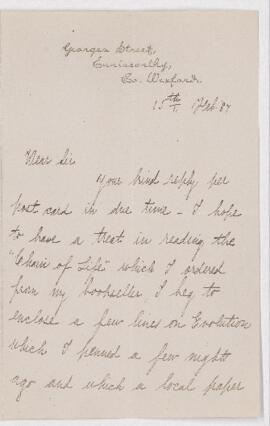 Georges Street,
Enniscorthy,
Co. Wexford.
15th Feb. 87
Dear Sir
Your kind reply, per
post card in due time – I hope
to have a treat in reading the
"Chain of Life" which I ordered
from my bookseller, I beg to
enclose a few lines on Evolution
which I penned a few nights
ago and which a local paper